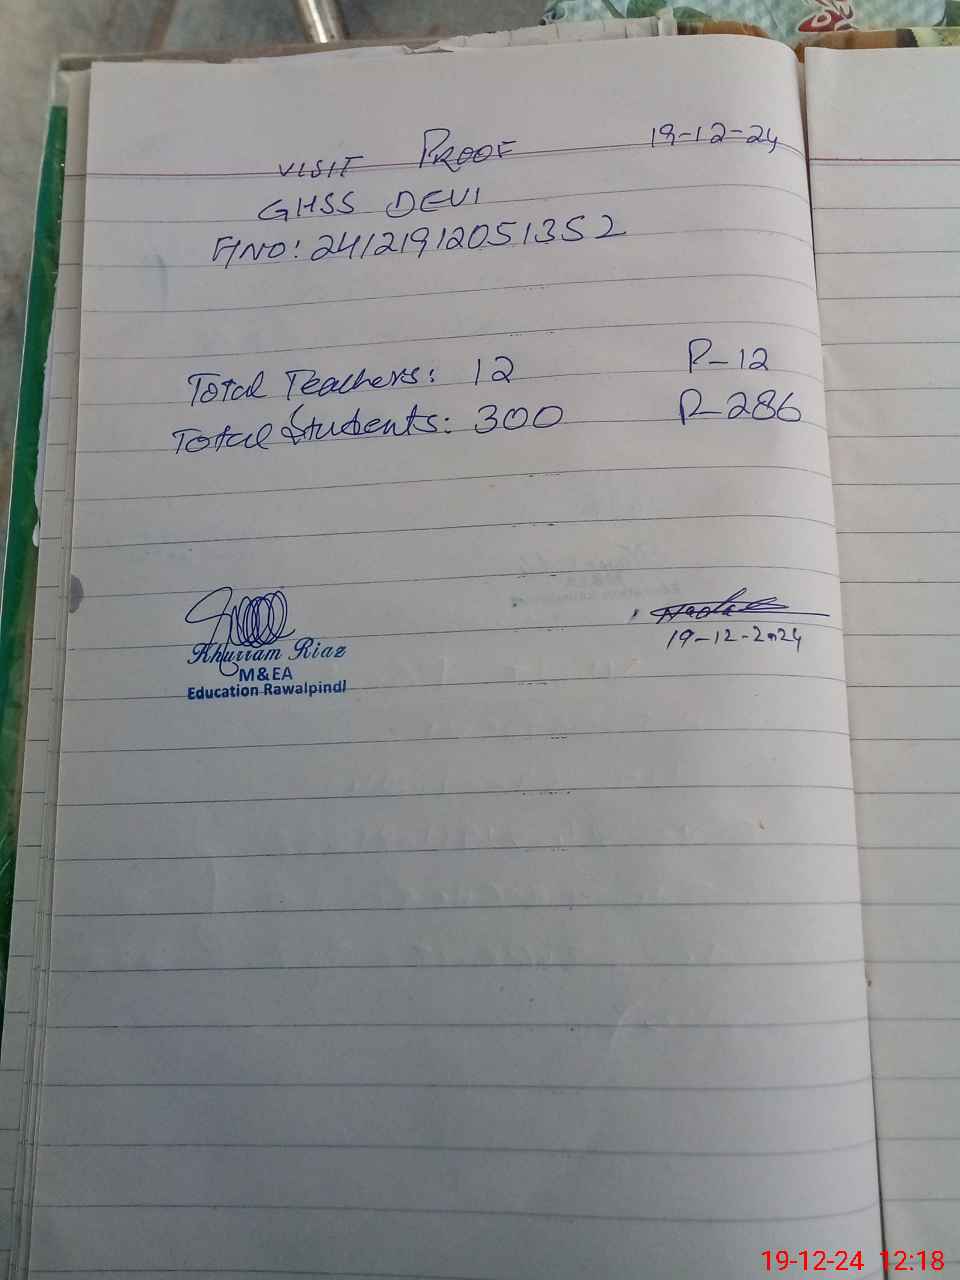 VISIT PROOF 19-12-24
GHSS DEVI
ANO: 24121912051352
Total Teachers: 12 P-12
Total Students: 300 P-286
Khurram Riaz
M&EA
Education Rawalpindi
19-12-2024
19-12-24 12:18